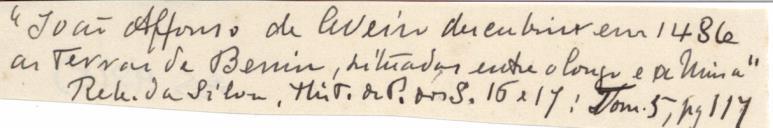 "João Affonso de Aveiro descubriu em 1486
as Terras de Benin, situadas entre o Congo e a Mina"
Reb. da Silva, Hist. de P. dos S. 16 e 17: Tom. 5, pg 117